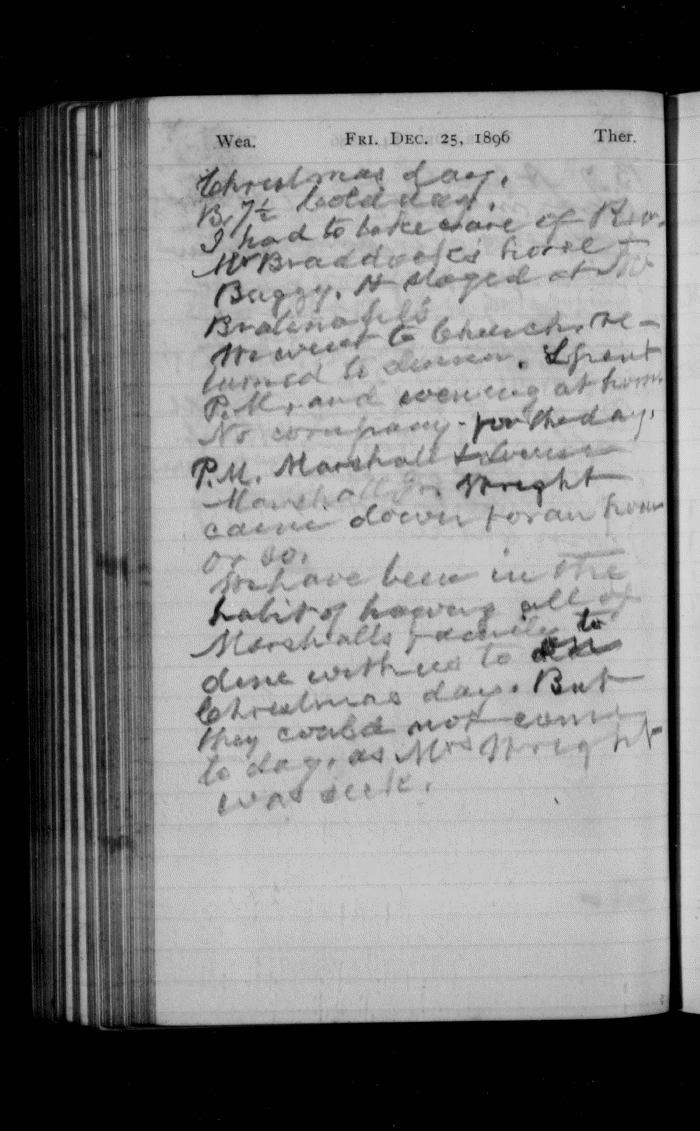 Wea. FRI. DEC. 25, 1896 Ther.
Christmas day.
B. 7½ Cold day.
I had to take care of Rev.
Mr Braddock's horse &
Buggy. He staged at Mr

We went to Church, re-
turned to dinner. Spent
P.M. and evening at home
No company for the day.
P.M. Marshall &
Marshall Jr. Wright
came down for an hour
or so.
We have been in the
habit of having all of
Marshalls family to
dine with us to
Christmas day. But
they could not come
to day, as Mrs Wright
was sick.